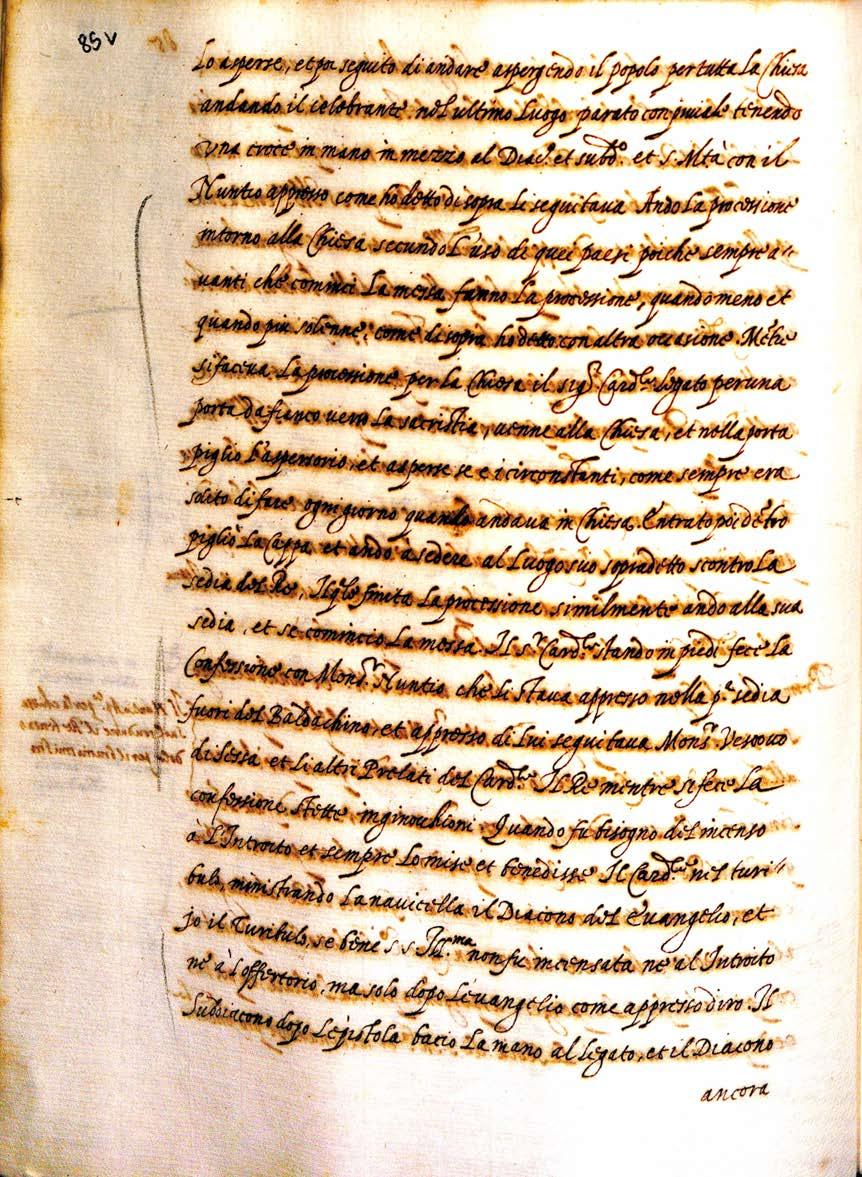 85v
Lo asperse, et poi seguito di andare aspergendo il popolo per tutta La Chiesa
andando il celebrante nel ultimo Luogo parato con piviale tenendo
una croce in mano in mezzo al Diac.º et subd.º et s. Mtà con il
Nuntio appresso come ho detto di sopra li seguitava Ando La processione
intorno alla Chiesa secundo L'uso di quei paesi poiche sempre a-
vanti che cominci La messa fanno La processione, quando meno et
quando piu solenne, come di sopra ho detto con altra occasione. Metre
si faceva La processione per la Chiesa il sig.r Card.le Legato per una
porta da fianco verso La sacristia, venne alla Chiesa, et nella porta
piglio L'aspersorio, et asperse se e i circonstanti, come sempre era
solito di fare ogni giorno quando andava in Chiesa. Entrato poi detro
piglio La Cappa et ando à sedere al Luogo suo sopradetto scontro La
sedia del Re, Il qle finita La processione similmente ando alla sua
sedia, et se comincio La messa. Il s.r Card.le stando in piedi fece La
Confessione con Mons.r Nuntio che li stava appresso nella p.a sedia
fuori del Baldachino, et appresso di Lui seguitava Mons.r Vescovo
di Sessa et li altri Prelati del Card.le Il Re mentre si fece La
confessione stette inginocchioni. Quando fu bisogno del incenso
à L'Introito et sempre Lo mise et benedisse Il Card.le nel turi-
bulo, ministrando La navicella il Diacono del Evangelio, et
jo il Turibulo, se bene s s Ill.ma non fu incensata ne al Introito
ne à l'offertorio, ma solo dopo L'evangelio come appresso diro. Il
Subdiacono dopo L'epistola bacio La mano al Legato, et il Diacono
ancora